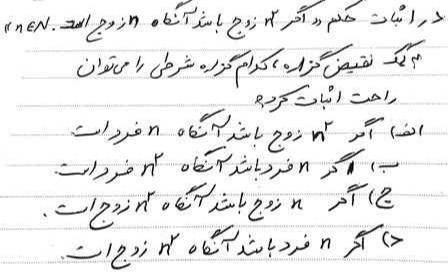 در اثبات حکم «اگر n² زوج باشد آنگاه n زوج است. n∈N»
به کمک نقیض گزاره، کدام گزاره شرطی را می‌توان
راحت اثبات کرد؟
الف) اگر n² زوج باشد آنگاه n فرد است
ب) اگر n فرد باشد آنگاه n² فرد است.
ج) اگر n زوج باشد آنگاه n² زوج است.
د) اگر n فرد باشد آنگاه n² زوج است.